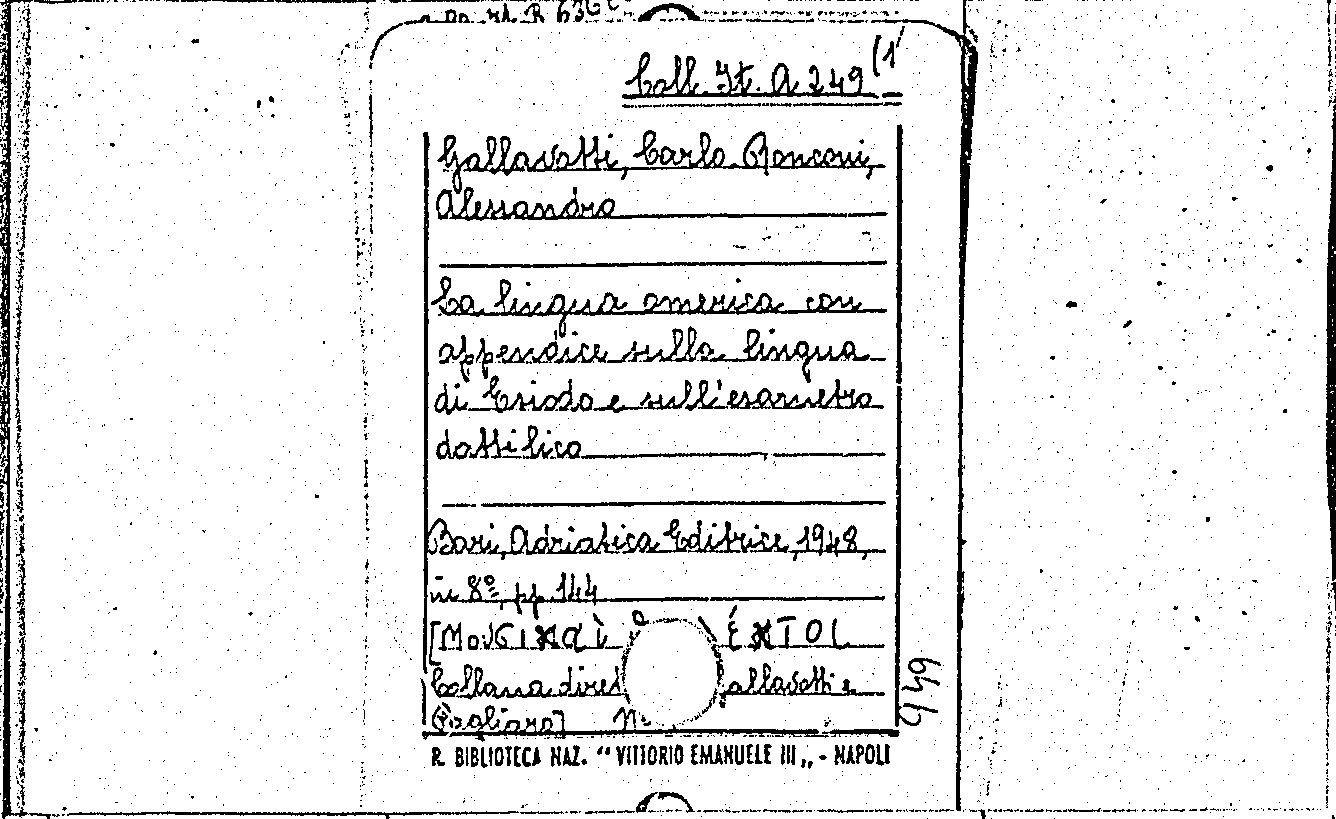 Coll. It. A 249 (1
Gallavotti, Carlo Ronconi,
Alessandro
La lingua omerica con
appendice sulla lingua
di Esiodo e sull'esametro
dattilico
Bari, Adriatica Editrice, 1948,
in 8º, pp. 144
[Μουσικαὶ
Collana diret allavotti e
Pagliaro]
949
R. BIBLIOTECA NAZ. “ VITTORIO EMANUELE III „ - NAPOLI